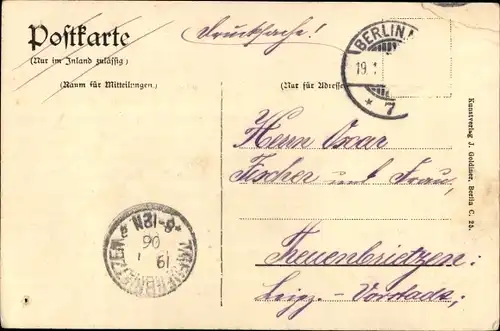 Postkarte
(Nur im Inland zulässig)
(Raum für Mitteilungen.)
Drucksache!
(Nur für Adresse
BERLIN
19.1
* 7
Herrn Oscar
Fischer und Frau,
Treuenbrietzen:
Leipz.-Vorstadt;
TREUENBRIETZEN
19 1
06
*8-12N
Kunstverlag J. Goldiner, Berlin C. 25.